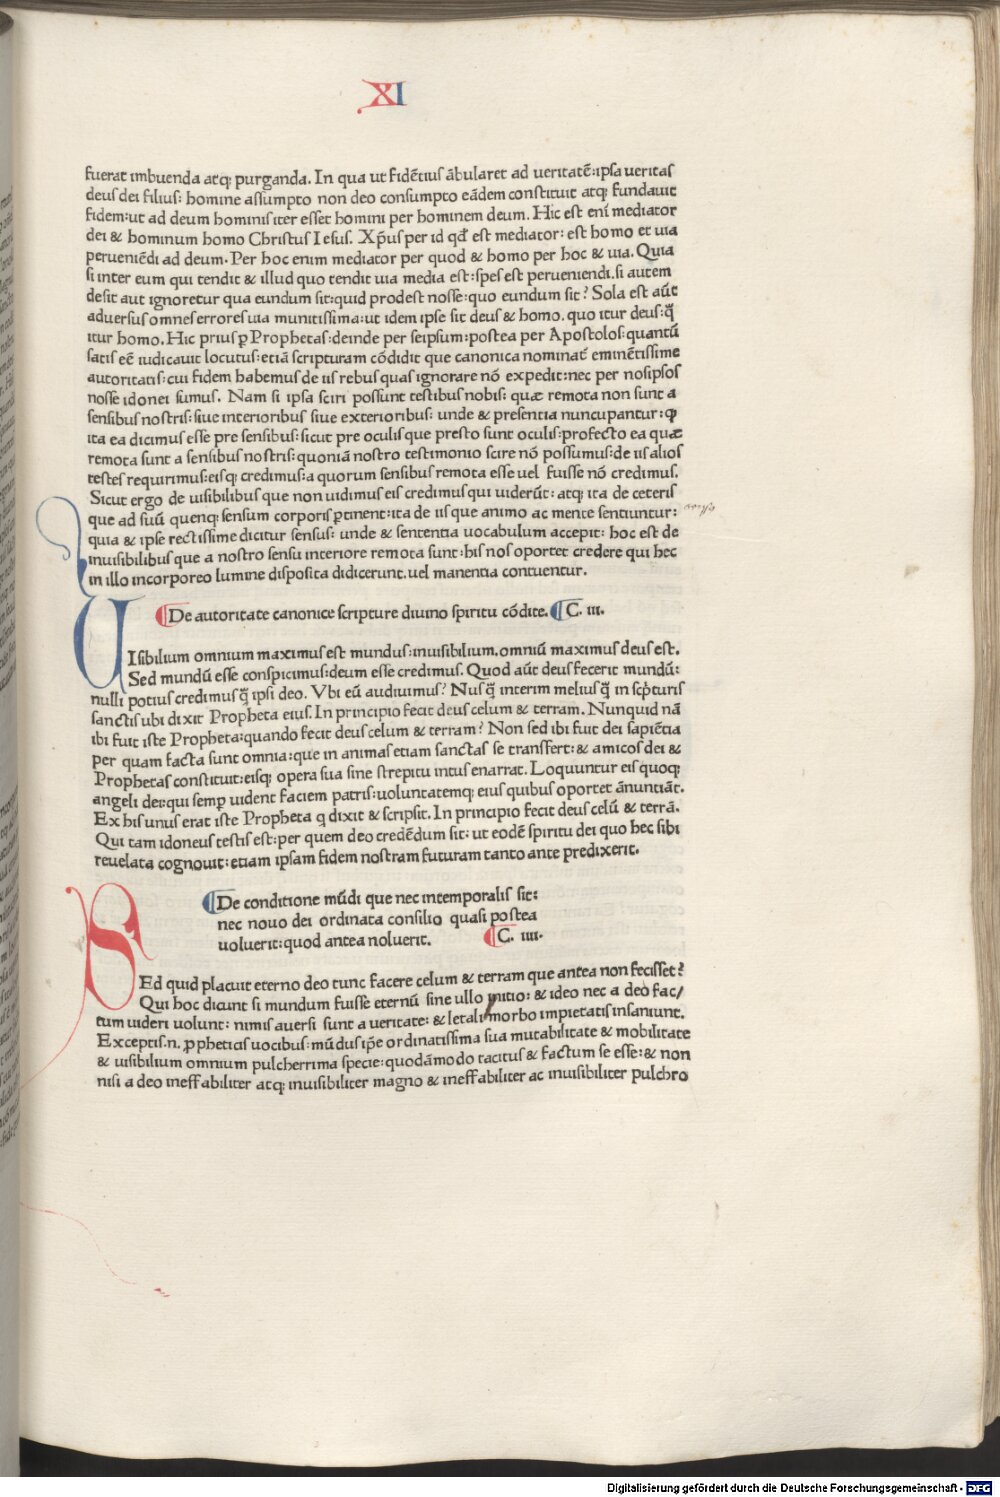 XI
fuerat imbuenda atq; purganda. In qua ut fidētius ābularet ad ueritatē: ipsa ueritas
deus dei filius: homine assumpto non deo consumpto eādem constituit atq; fundauit
fidem: ut ad deum hominis iter esset homini per hominem deum. Hic est eni mediator
dei & hominum homo Christus Iesus. Xp̄us per id qd̄ est mediator: est homo et uia
perueniēdi ad deum. Per hoc enim mediator per quod & homo per hoc & uia. Quia
si inter eum qui tendit & illud quo tendit uia media est: spes est perueniendi. si autem
desit aut ignoretur qua eundum sit: quid prodest nosse: quo eundum sit? Sola est aūt
aduersus omnes errores uia munitissima: ut idem ipse sit deus & homo. quo itur deus: q̄
itur homo. Hic prius ꝑ Prophetas: deinde per seipsum: postea per Apostolos: quantū
satis eē iudicauit locutus: etiā scripturam cōdidit que canonica nominat̄ eminētissime
autoritatis: cui fidem habemus de iis rebus quas ignorare nō expedit: nec per nosipsos
nosse idonei sumus. Nam si ipsa sciri possunt testibus nobis: quæ remota non sunt a
sensibus nostris: siue interioribus siue exterioribus: unde & presentia nuncupantur: ꝙ
ita ea dicimus esse pre sensibus: sicut pre oculis que presto sunt oculis: profecto ea quæ
remota sunt a sensibus nostris: quoniā nostro testimonio scire nō possumus: de iis alios
testes requirimus: eisq; credimus: a quorum sensibus remota esse uel fuisse nō credimus.
Sicut ergo de uisibilibus que non uidimus eis credimus qui uiderūt: atq; ita de ceteris
que ad suū quenq; sensum corporis ꝑtinent: ita de iis que animo ac mente sentiuntur:
quia & ipse rectissime dicitur sensus: unde & sententia uocabulum accepit: hoc est de
inuisibilibus que a nostro sensu interiore remota sunt: his nos oportet credere qui hec
in illo incorporeo lumine disposita didicerunt. uel manentia contuentur.
¶De autoritate canonice scripture diuino spiritu cōdite. ¶C. iii.
UIsibilium omnium maximus est mundus: inuisibilium. omniū maximus deus est.
Sed mundū esse conspicimus: deum esse credimus. Quod aūt deus fecerit mundū:
nulli potius credimus q̄ ipsi deo. Vbi eū audiuimus? Nusq̄ interim melius q̄ in scpturis
sanctis ubi dixit Propheta eius. In principio fecit deus celum & terram. Nunquid nā
ibi fuit iste Propheta: quando fecit deus celum & terram? Non sed ibi fuit dei sapiētia
per quam facta sunt omnia: que in animas etiam sanctas se transfert: & amicos dei &
Prophetas constituit: eisq; opera sua sine strepitu intus enarrat. Loquuntur eis quoq;
angeli dei: qui semꝑ uident faciem patris: uoluntatemq; eius quibus oportet ānuntiāt.
Ex his unus erat iste Propheta q dixit & scripsit. In principio fecit deus celū & terrā.
Qui tam idoneus testis est: per quem deo credēdum sit: ut eodē spiritu dei quo hec sibi
reuelata cognouit: etiam ipsam fidem nostram futuram tanto ante predixerit.
¶De conditione mūdi que nec intemporalis sit:
nec nouo dei ordinata consilio quasi postea
uoluerit: quod antea noluerit. ¶C. iiii.
SED quid placuit eterno deo tunc facere celum & terram que antea non fecisset?
Qui hoc dicunt si mundum fuisse eternū sine ullo initio: & ideo nec a deo fac/
tum uideri uolunt: nimis auersi sunt a ueritate: & letali morbo impietatis insaniunt.
Exceptis.n. ꝓpheticis uocibus: mūdus ip̄e ordinatissima sua mutabilitate & mobilitate
& uisibilium omnium pulcherrima specie: quodāmodo tacitus & factum se esse: & non
nisi a deo ineffabiliter atq; inuisibiliter magno & ineffabiliter ac inuisibiliter pulchro
Digitalisierung gefördert durch die Deutsche Forschungsgemeinschaft - DFG